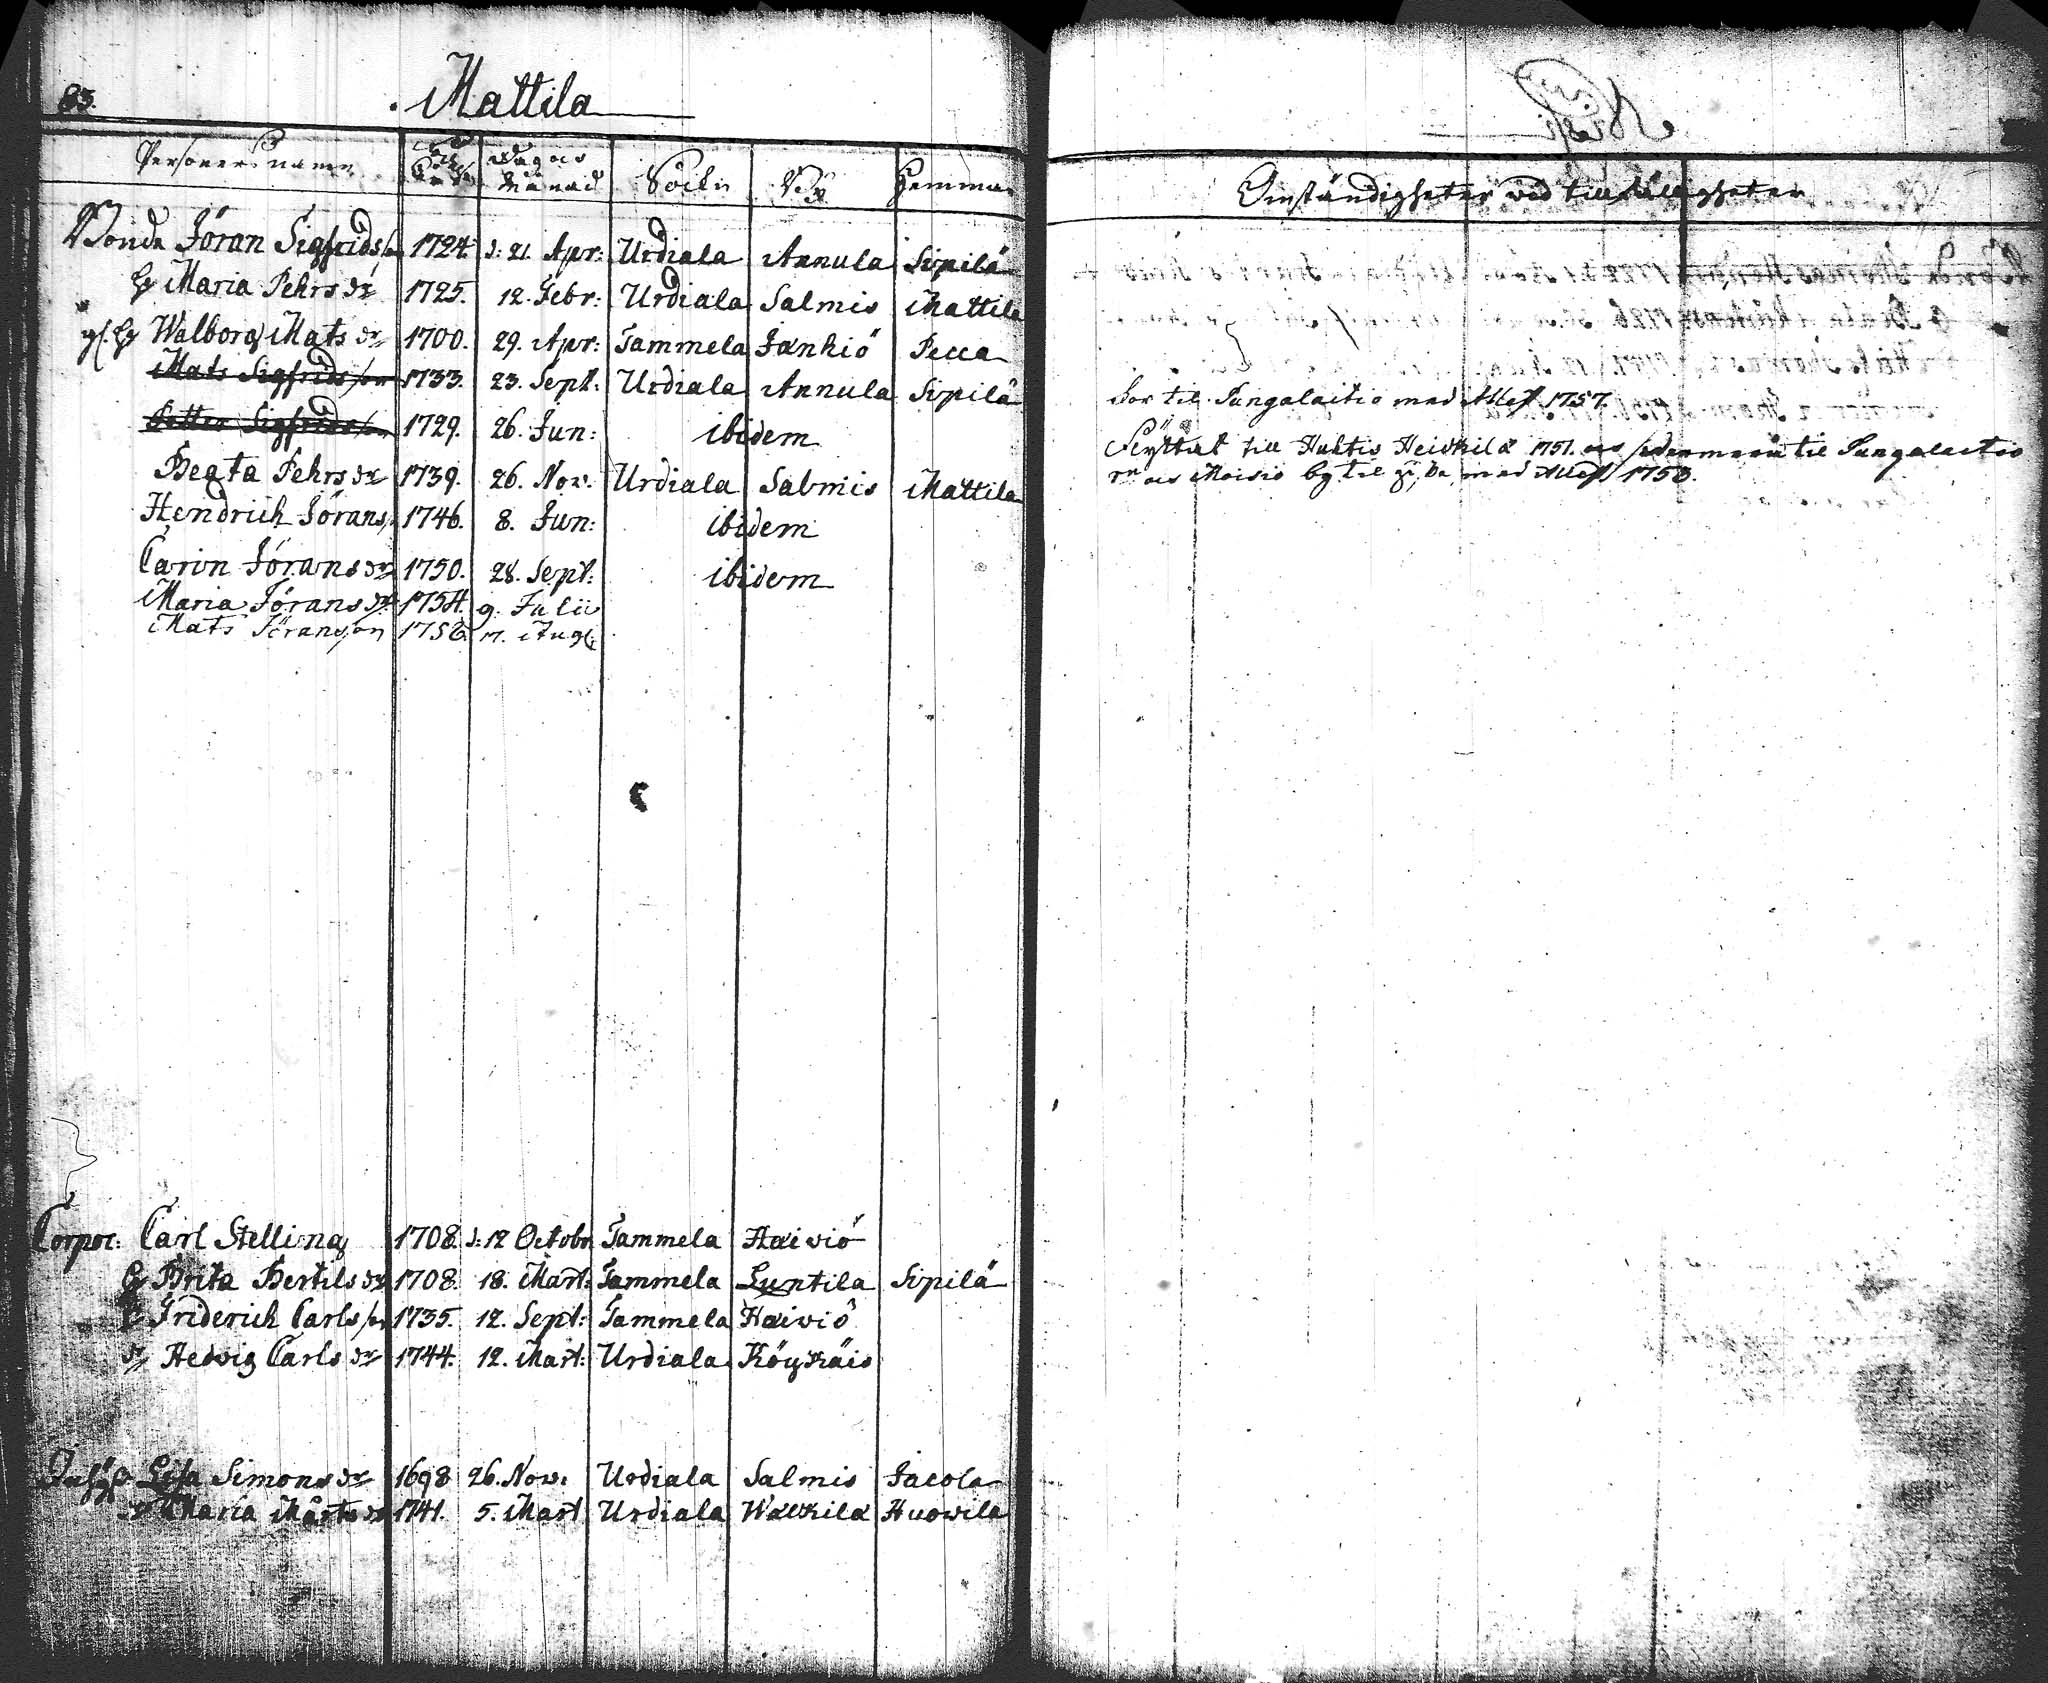 83.
Mattila
Persones namn Dag och Månad Sockn By Hemman
Bonde Jöran Sigfridsson 1724. d: 21. Apr: Urdiala Annula Sipilä
H Maria Pehrs dr 1725. 12. Febr: Urdiala Salmis Mattila
gl. H Walborg Mats dr 1700. 29. Apr: Tammela Jankiö Pecca
Mats Sigfridsson 1733. 23. Sept: Urdiala Annula Sipilä
Petter Sigfridsson 1729. 26. Jun: ibidem
Beata Pehrs dr 1739. 26. Nov. Urdiala Salmis Mattila
Hendrich Jörans 1746. 8. Jun: ibidem
Carin Jörans dr 1750. 28. Sept: ibidem
Maria Jörans dr 1754. 9. Julii
Mats Jöransson 1756 17. Aug
Corpor: Carl Stelling 1708. d: 12 Octobr Tammela Haiviö
H Brita Bertils dr 1708. 18. Mart: Tammela Luntila Sipilä
Friderich Carlsson 1735. 12. Sept: Tammela Haiviö
dr Hedvig Carls dr 1744. 12. Mart: Urdiala Köykäis
Lisa Simons dr 1698 26. Nov: Urdiala Salmis Jacola
dr Maria Mårts dr 1741. 5. Mart Urdiala Walkila Huovila
Omständigheter wid tillfälligheter
til Sungalaitio med Attest 1757.
Flyttat till Huhtis Heickilä 1751. och sedermera til Sungalaitio
och Moisio by til med Attest 1758.